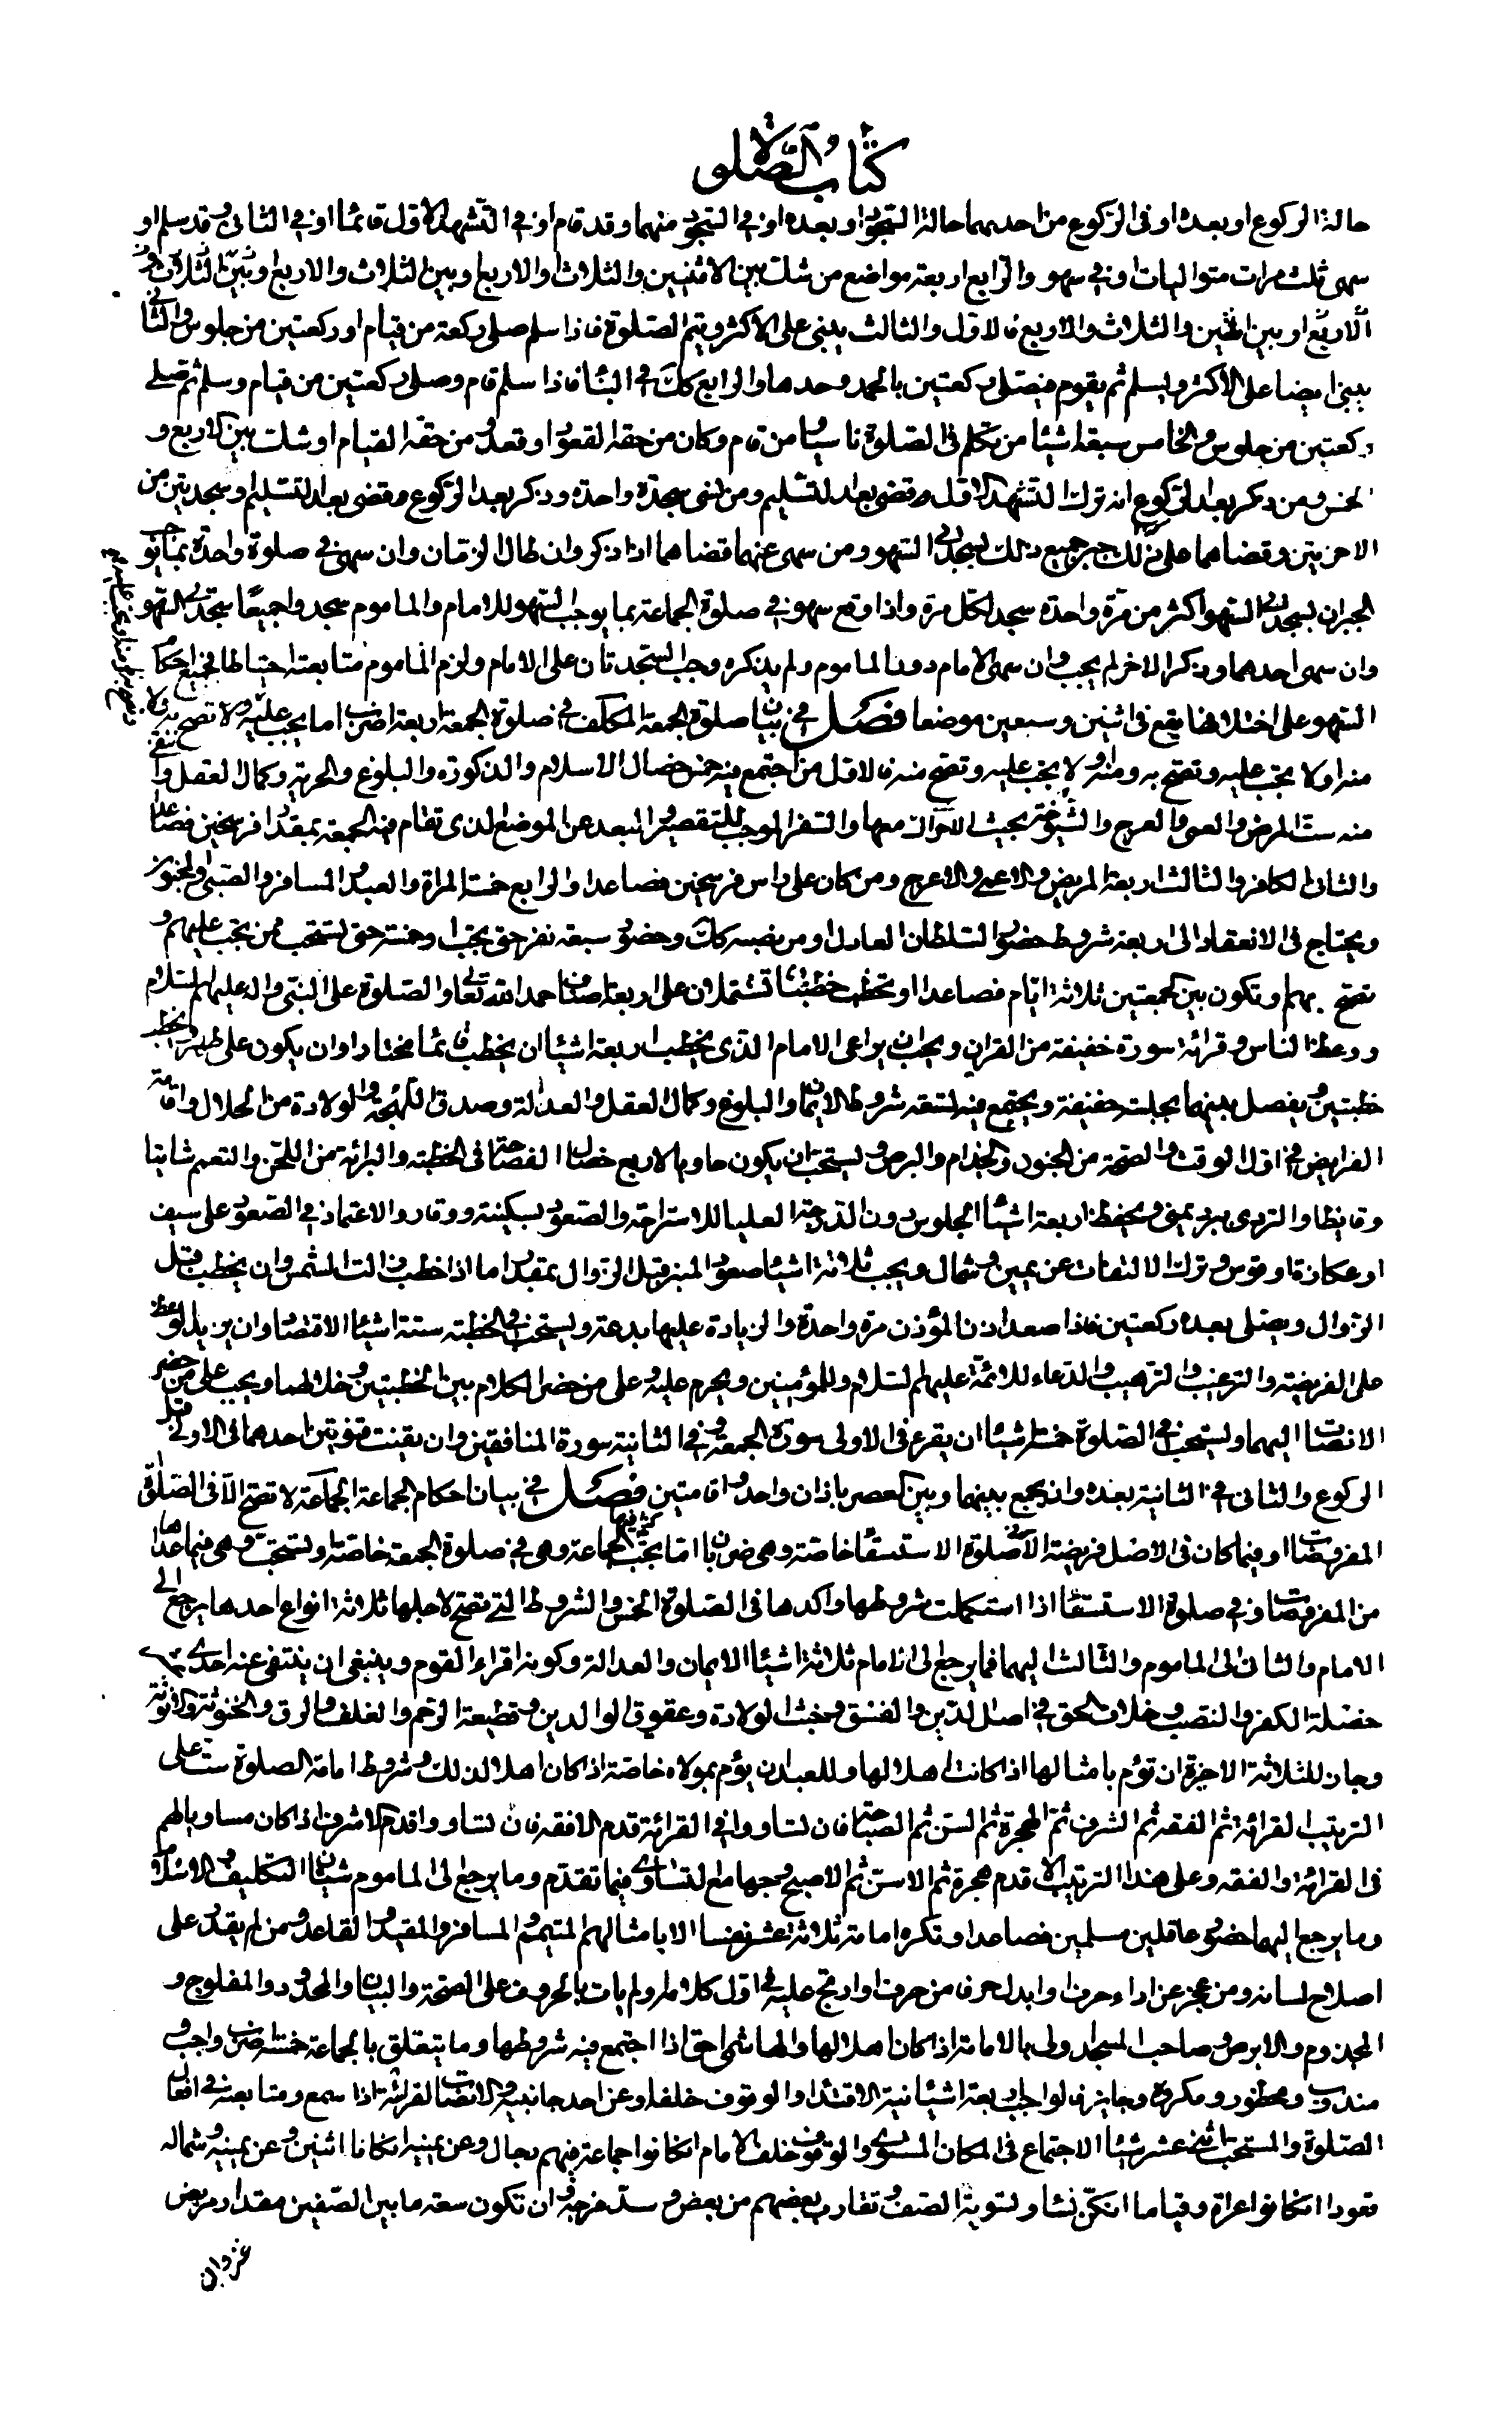 كتاب الصلوة
حالة الركوع او بعده او في الركوع من احديهما حالة السجود او بعده او في السجود منهما وقد قام او في التشهد الاول قائما او في الثاني وقد سلم او
سهى ثلث مرات متواليات او في سهو والرابع اربعة مواضع من شك بين الاثنين والثلاث والاربع وبين الثلاث والاربع او بين الثلاث و
الاربع او بين اثنين والثلاث والاربع فالاول والثالث يبنى على الاكثر ويتم الصلوة فاذا سلم صلى ركعة من قيام او ركعتين من جلوس والثاني
يبنى ايضا على الاكثر ويسلم ثم يقوم فيصلى ركعتين بالحمد وحدها والرابع كك في البناء فاذا سلم قام وصلى ركعتين من قيام وسلم ثم صلى
ركعتين من جلوس والخامس سبعة اشياء من تكلم في الصلوة ناسيا ومن قام وكان من حقه القعود او قعد ومن حقه القيام او شك بين الاربع و
الخمس ومن ذكر بعد الركوع انه ترك التشهد الاول وقضى بعد التسليم ومن نسى سجدة واحدة وذكر بعد الركوع وقضى بعد التسليم او سجدتين من
الاخريتين وقضاهما على ذلك جبر جميع ذلك بسجدتي السهو ومن سهى عنهما قضاهما اذا ذكر وان طال الزمان وان سهى في صلوة واحدة بما يوجب
الجبران بسجدتي السهو اكثر من مرة واحدة سجد لكل مرة واذا وقع سهو في صلوة الجماعة بما يوجب السهو للامام والماموم سجدوا جميعا سجدتي السهو
وان سهى احدهما وذكر الاخر لم يجب وان سهى الامام دون الماموم ولم يذكره وجب السجدتان على الامام ولزم الماموم متابعته احتياطا فجميع احكام
السهو على اختلافها يقع في اثنين وسبعين موضعا فصل في بيان صلوة الجمعة المكلف في صلوة الجمعة اربعة اضرب اما يجب عليه ولا تصح به ولا
منه او لا تجب عليه وتصح به ومنه او لا يجب عليه وتصح منه فالاول من اجتمع فيه خمس خصال الاسلام والذكورة والبلوغ والحرية وكمال العقل وانتفى
منه ست المرض والعمى والعرج والشيخوخة بحيث لا حراك معها والسفر الموجب للتقصير والبعد عن الموضع الذي تقام فيه الجمعة بمقدار فرسخين فصاعدا
والثاني الكافر والثالث اربعة المريض والاعمى والاعرج ومن كان على راس فرسخين فصاعدا والرابع خمسة المراة والعبد والمسافر والصبي والمجنون
ويحتاج في الانعقاد الى اربعة شروط حضور السلطان العادل او من نصبه كك وحضور سبعة نفر حتى يجب او خمسة حتى يستحب ممن يجب عليهم و
تصح بهم وتكون بين جمعتين ثلاثة ايام فصاعدا وتخطب خطبتان تشتملان على اربعة اصناف حمد الله تعالى والصلوة على النبي واله عليهم السلام
ووعظ الناس وقرائة سورة خفيفة من القران ويجب ان يراعى الامام الذي يخطب اربعة اشياء ان يخطب قائما مختارا وان يكون على طهر ويخطب
خطبتين ويفصل بينهما بجلسة خفيفة ويجتمع فيه تسعة شروط الايمان والبلوغ وكمال العقل والعدالة وصدق اللهجة والولادة من الحلال واقامة
الفرايض في اول الوقت والصحة من الجنون والجذام والبرص ويستحب ان يكون حاويا لاربع خصال الفصاحة في الخطبة والبرائة من اللحن والتعمم شاتيا
وقايظا والتردي ببرد يمنى ويحفظ اربعة اشياء الجلوس دون الدرجة العليا للاستراحة والصعود بسكينة ووقار والاعتماد في الصعود على سيف
او عكازة او قوس وترك الالتفات عن يمين وشمال ويجب ثلاثة اشياء صعود المنبر قبل الزوال بمقدار ما اذا خطب زالت الشمس وان يخطب قبل
الزوال ويصلى بعده ركعتين فاذا صعد اذن المؤذن مرة واحدة والزيادة عليها بدعة ويستحب في الخطبة ستة اشياء الاقتصاد وان يزيد الوعظ
على الفريضة والترغيب والترهيب والدعاء للائمة عليهم السلام وللمؤمنين ويحرم عليه وعلى من حضر الكلام بين الخطبتين وخلالهما ويجب على من حضر
الانصات اليهما ويستحب في الصلوة خمسة اشياء ان يقرء في الاولى سورة الجمعة وفي الثانية سورة المنافقين وان يقنت قنوتين احدهما في الاولى قبل
الركوع والثاني في الثانية بعده وان يجمع بينهما وبين العصر باذان واحد واقامتين فصل في بيان احكام الجماعة الجماعة لا تصح الا في الصلوة
المفروضات او فيما كان في الاصل فريضة الا صلوة الاستسقاء خاصة وهي ضربان اما يجب الجماعة وهي في صلوة الجمعة خاصة او تستحب وهي فيما عداها
من المفروضات وفي صلوة الاستسقاء اذا استكملت شروطها واكدها في الصلوة الخمس والشروط التي تصح لاجلها ثلاثة انواع احدها يرجع الى
الامام والثاني الى الماموم والثالث اليهما فما يرجع الى الامام ثلاثة اشياء الايمان والعدالة وكونه اقراء القوم وينبغي ان ينتفى عنه احدى عشرة
خصلة الكفر والنصب وخلاف الحق في اصل الدين والفسق وخبث الولادة وعقوق الوالدين وقطيعة الرحم والغلف والرق والخنوثة والانوثة
وجاز للثلاثة الاخيرة ان تؤم بامثالها اذ كانت اهلا لها وللعبد ان يؤم بمولاه خاصة اذ كان اهلا لذلك وشروط امامة الصلوة ست على
الترتيب القرائة ثم الفقه ثم الشرف ثم الهجرة ثم السن ثم الصباحة فان تساووا في القرائة قدم الافقه فان تساووا قدم الاشرف اذ كان مساويا لهم
في القرائة والفقه وعلى هذا الترتيب الاقدم هجرة ثم الاسن ثم الاصبح وجها مع التساوي فيما تقدم وما يرجع الى الماموم شيئان التكليف والاسلام
وما يرجع اليهما حضور عاقلين مسلمين فصاعدا وتكره امامة ثلاثة عشر نفسا الا بامثالهم المتيمم والمسافر والمقيد والقاعد ومن لم يقدر على
اصلاح لسانه ومن عجز عن اداء حرف او ابدل حرفا من حرف او ارتج عليه في اول كلامه ولم يات بالحروف على الصحة والبيان والمحدود والمفلوج و
المجذوم والابرص وصاحب المسجد اولى بالامامة اذ كان اهلا لها والهاشمى احق اذا اجتمع فيه شروطها وما يتعلق بالجماعة خمسة اضرب واجب و
مندوب ومحظور ومكروه وجايز فالواجب اربعة اشياء نية الاقتداء والوقوف خلفه او عن احد جانبيه والانصات لقرائته اذا سمع ومتابعته في افعال
الصلوة والمستحب اثنى عشر شيئا الاجتماع في المكان المستوي والوقوف خلف الامام ان كانوا جماعة فيهم رجال وعن يمينه ان كانا اثنين وعن يمينه وشماله
قعودا ان كانوا عراة وقياما ان كن نساء وتسوية الصف وتقارب بعضهم من بعض وسد فرجه وان تكون سعة ما بين الصفين مقدار مربض